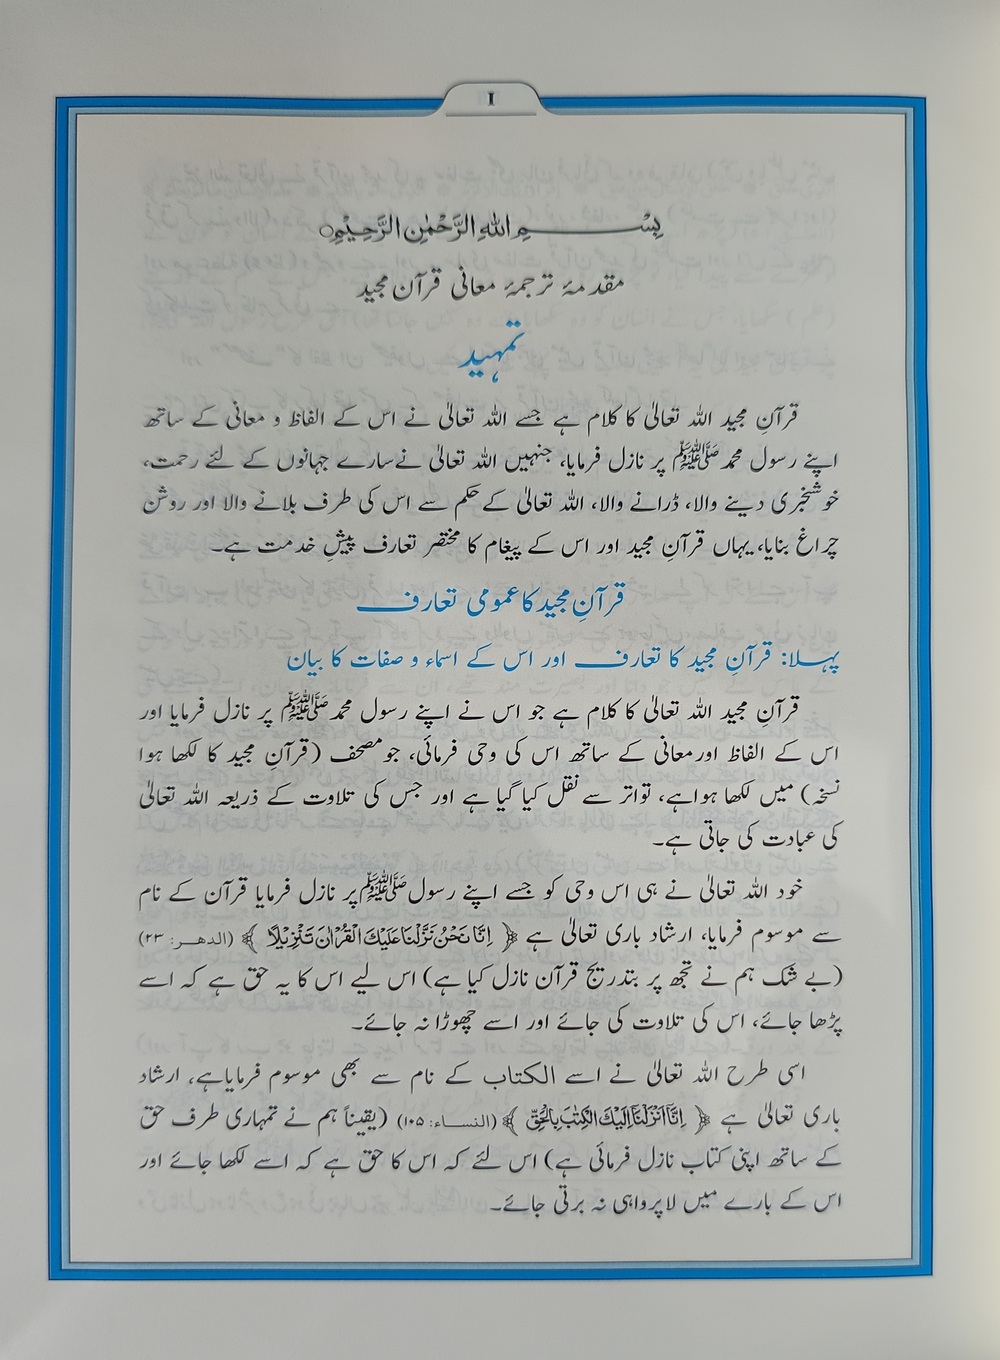 I
بِسْــــــمِ اللهِ الرَّحْمٰنِ الرَّحِيْمِ
مقدمۂ ترجمۂ معانی قرآن مجید
تمہید
قرآنِ مجید اللہ تعالیٰ کا کلام ہے جسے اللہ تعالیٰ نے اس کے الفاظ و معانی کے ساتھ
اپنے رسول محمد ﷺ پر نازل فرمایا، جنہیں اللہ تعالیٰ نے سارے جہانوں کے لئے رحمت،
خوشخبری دینے والا، ڈرانے والا، اللہ تعالیٰ کے حکم سے اس کی طرف بلانے والا اور روشن
چراغ بنایا، یہاں قرآنِ مجید اور اس کے پیغام کا مختصر تعارف پیشِ خدمت ہے۔
قرآنِ مجید کا عمومی تعارف
پہلا: قرآنِ مجید کا تعارف اور اس کے اسماء و صفات کا بیان
قرآنِ مجید اللہ تعالیٰ کا کلام ہے جو اس نے اپنے رسول محمد ﷺ پر نازل فرمایا اور
اس کے الفاظ اور معانی کے ساتھ اس کی وحی فرمائی، جو مصحف (قرآنِ مجید کا لکھا ہوا
نسخہ) میں لکھا ہوا ہے، تواتر سے نقل کیا گیا ہے اور جس کی تلاوت کے ذریعہ اللہ تعالیٰ
کی عبادت کی جاتی ہے۔
خود اللہ تعالیٰ نے ہی اس وحی کو جسے اپنے رسول ﷺ پر نازل فرمایا قرآن کے نام
سے موسوم فرمایا، ارشاد باری تعالیٰ ہے ﴿ اِنَّا نَحْنُ نَزَّلْنَا عَلَيْكَ الْقُرْاٰنَ تَنْزِيْلًا ﴾ (الدھر: ۲۳)
(بے شک ہم نے تجھ پر بتدریج قرآن نازل کیا ہے) اس لیے اس کا یہ حق ہے کہ اسے
پڑھا جائے، اس کی تلاوت کی جائے اور اسے چھوڑا نہ جائے۔
اسی طرح اللہ تعالیٰ نے اسے الکتاب کے نام سے بھی موسوم فرمایا ہے، ارشاد
باری تعالیٰ ہے ﴿ اِنَّآ اَنْزَلْنَآ اِلَيْكَ الْكِتٰبَ بِالْحَقِّ ﴾ (النساء: ۱۰۵) (یقیناً ہم نے تمہاری طرف حق
کے ساتھ اپنی کتاب نازل فرمائی ہے) اس لئے کہ اس کا حق ہے کہ اسے لکھا جائے اور
اس کے بارے میں لاپرواہی نہ برتی جائے۔